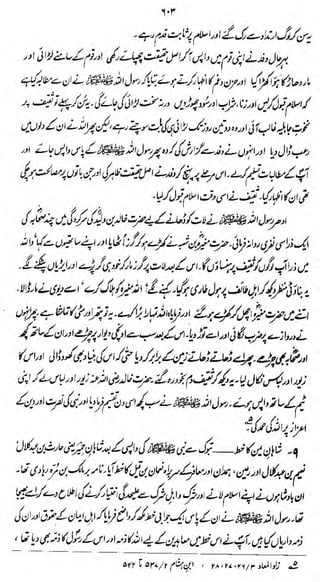 ۶۰۳
یہ سن کر لوگ ارتداد سے رک گئے اور اسلام پر ثابت قدم رہے۔
بہرحال وفد نے اپنی قوم میں واپس آ کر اصل حقیقت چھپائے رکھی اور قوم کے سامنے لڑائی اور
مار دھاڑ کا ہوا کھڑا کیا اور حزن و غم کا اظہار کرتے ہوئے بتایا کہ رسول اللہ ﷺ نے ان سے مطالبہ کیا ہے
کہ اسلام قبول کر لیں اور زنا، شراب اور سود چھوڑ دیں ورنہ سخت لڑائی کی جائے گی۔ یہ سن کر پہلے تو ثقیف پر
نخوتِ جاہلیہ غالب آئی اور وہ دو تین روز تک لڑائی ہی کی بات سوچتے رہے، لیکن پھر اللہ نے ان کے دلوں میں
رعب ڈال دیا اور انہوں نے وفد سے گزارش کی کہ وہ پھر رسول اللہ ﷺ کے پاس واپس جائے اور
آپ کے مطالبات تسلیم کر لے۔ اس مرحلے پر پہنچ کر وفد نے اصل حقیقت ظاہر کی اور جن باتوں پر مصالحت ہو چکی
تھی ان کا اظہار کیا۔ ثقیف نے اسی وقت اسلام قبول کر لیا۔
ادھر رسول اللہ ﷺ نے لات کو ڈھانے کے لیے حضرت خالد بن ولید کی سرکردگی میں چند صحابہ کی
ایک ذرا سی نفری روانہ فرمائی۔ حضرت مغیرہ بن شعبہ نے کھڑے ہو کر گرز اٹھایا اور اپنے ساتھیوں سے کہا: واللہ
میں ذرا آپ لوگوں کو ثقیف پر ہنساؤں گا۔ اس کے بعد لات پر گرز مار کر خود ہی گر پڑے اور ایڑیاں پٹکنے لگے۔
یہ بناوٹی منظر دیکھ کر اہل طائف پر ہول طاری ہو گیا۔ کہنے لگے: اللہ مغیرہ کو ہلاک کرے، اسے دیوی نے مار ڈالا۔
اتنے میں حضرت مغیرہ اچھل کر کھڑے ہو گئے اور فرمایا: اللہ تمہارا برا کرے۔ یہ تو پتھر اور مٹی کا تماشا ہے پھر انہوں
نے دروازے پر ضرب لگائی اور اسے توڑ دیا۔ اس کے بعد سب سے اونچی دیوار پر چڑھے اور ان کے ساتھ کچھ
اور صحابہ بھی چڑھے۔ پھر اسے ڈھاتے ڈھاتے زمین کے برابر کر دیا حتیٰ کہ اس کی بنیاد بھی کھود ڈالی اور اس کا
زیور اور لباس نکال لیا۔ یہ دیکھ کر ثقیف دم بخود رہ گئے۔ حضرت خالد رضی اللہ عنہ زیور اور لباس لے کر اپنی
ٹیم کے ساتھ واپس ہوئے۔ رسول اللہ ﷺ نے سب کچھ اسی دن تقسیم فرما دیا اور نبی کی نصرت اور دین کے
اعزاز پر اللہ کی حمد کی۔
۹۔ شاہانِ یمن کا خط — تبوک سے نبی ﷺ کی واپسی کے بعد شاہانِ حمیر یعنی حارث بن عبد کلال
نعیم بن عبد کلال اور رعین، ہمدان اور معافر کے سربراہ نعمان بن قیل کا خط آیا۔ نامہ بر مالک بن مرہ رہاوی تھا۔
ان بادشاہوں نے اپنے اسلام لانے اور شرک و اہل شرک سے علیحدگی اختیار کرنے کی اطلاع دے کر اسے بھیجا
تھا۔ رسول اللہ ﷺ نے ان کے پاس ایک جوابی خط لکھ کر واضح فرمایا کہ اہل ایمان کے حقوق اور ان کی
ذمہ داریاں کیا ہیں۔ آپ نے اس خط میں معاہدین کے لیے اللہ کا ذمہ اور اس کے رسول کا ذمہ بھی دیا تھا،
زاد المعاد ۳/۲۶، ۲۷، ۲۸۔ ابن ہشام ۲/۵۳۷ تا ۵۴۲